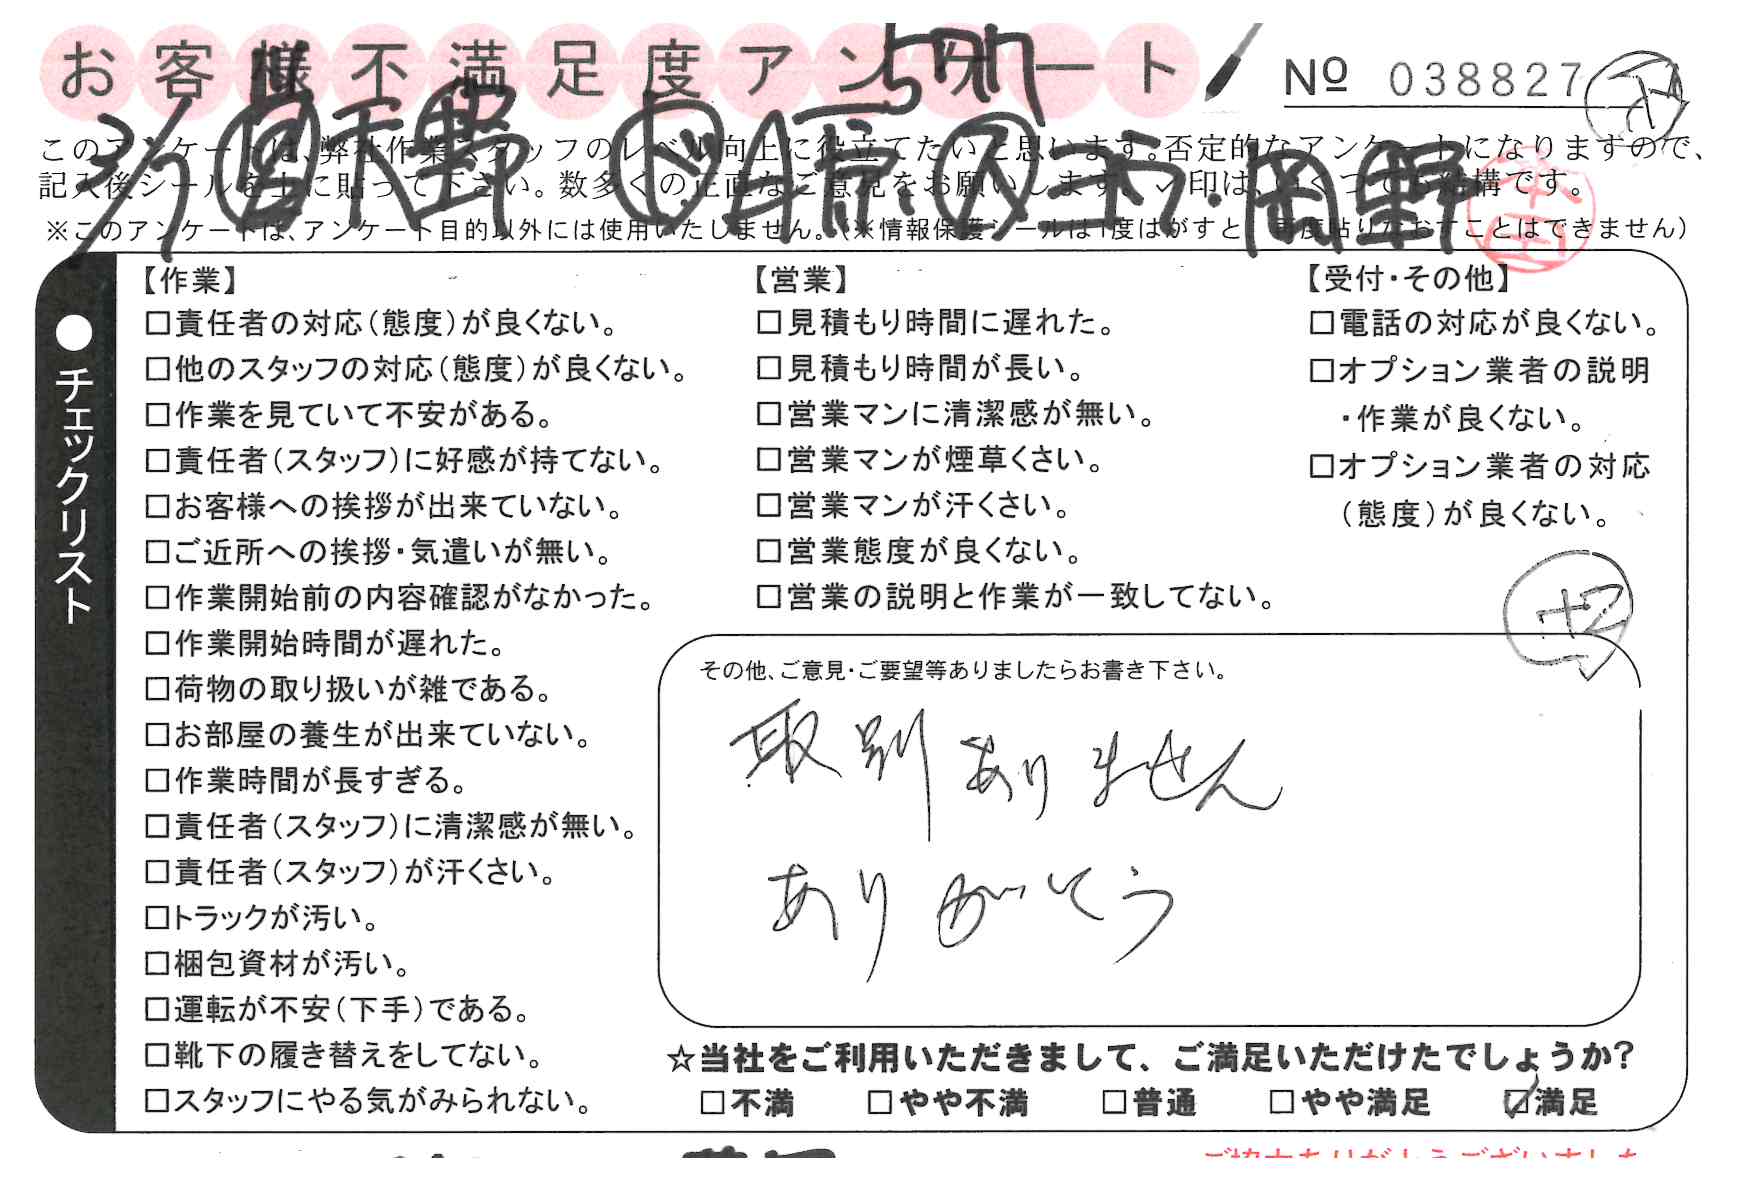 お客様不満足度アンケート
№ 038827
このアンケートは、弊社作業スタッフのレベル向上に役立てたいと思います。否定的なアンケートになりますので、
記入後シールを上に貼って下さい。数多くの正直なご意見をお願いします。✓印は、いくつでも結構です。
※このアンケートは、アンケート目的以外には使用いたしません。(※情報保護シールは1度はがすと、再度貼りなおすことはできません)
天野
岡野
●チェックリスト
【作業】
□責任者の対応(態度)が良くない。
□他のスタッフの対応(態度)が良くない。
□作業を見ていて不安がある。
□責任者(スタッフ)に好感が持てない。
□お客様への挨拶が出来ていない。
□ご近所への挨拶・気遣いが無い。
□作業開始前の内容確認がなかった。
□作業開始時間が遅れた。
□荷物の取り扱いが雑である。
□お部屋の養生が出来ていない。
□作業時間が長すぎる。
□責任者(スタッフ)に清潔感が無い。
□責任者(スタッフ)が汗くさい。
□トラックが汚い。
□梱包資材が汚い。
□運転が不安(下手)である。
□靴下の履き替えをしてない。
□スタッフにやる気がみられない。
【営業】
□見積もり時間に遅れた。
□見積もり時間が長い。
□営業マンに清潔感が無い。
□営業マンが煙草くさい。
□営業マンが汗くさい。
□営業態度が良くない。
□営業の説明と作業が一致してない。
【受付・その他】
□電話の対応が良くない。
□オプション業者の説明
・作業が良くない。
□オプション業者の対応
(態度)が良くない。
その他、ご意見・ご要望等ありましたらお書き下さい。
取別ありません
ありがとう
☆当社をご利用いただきまして、ご満足いただけたでしょうか?
□不満 □やや不満 □普通 □やや満足 ☑満足
ご協力ありがとうございました